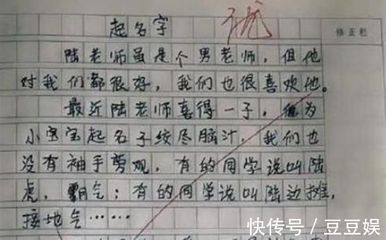 起名字
修正栏
陆老师虽是个男老师，但他
对我们都很好，我们也很喜欢他。
最近陆老师喜得一子，他为
小宝宝起名子绞尽脑汁，我们也
没有袖手旁观，有的同学说叫陆
虎，霸气；有的同学说叫陆边摊，
接地气……
快传号／豆豆娱